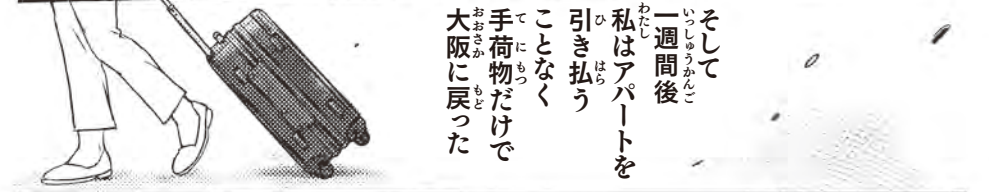 そして
一週間後
私はアパートを
引き払う
ことなく
手荷物だけで
大阪に戻った